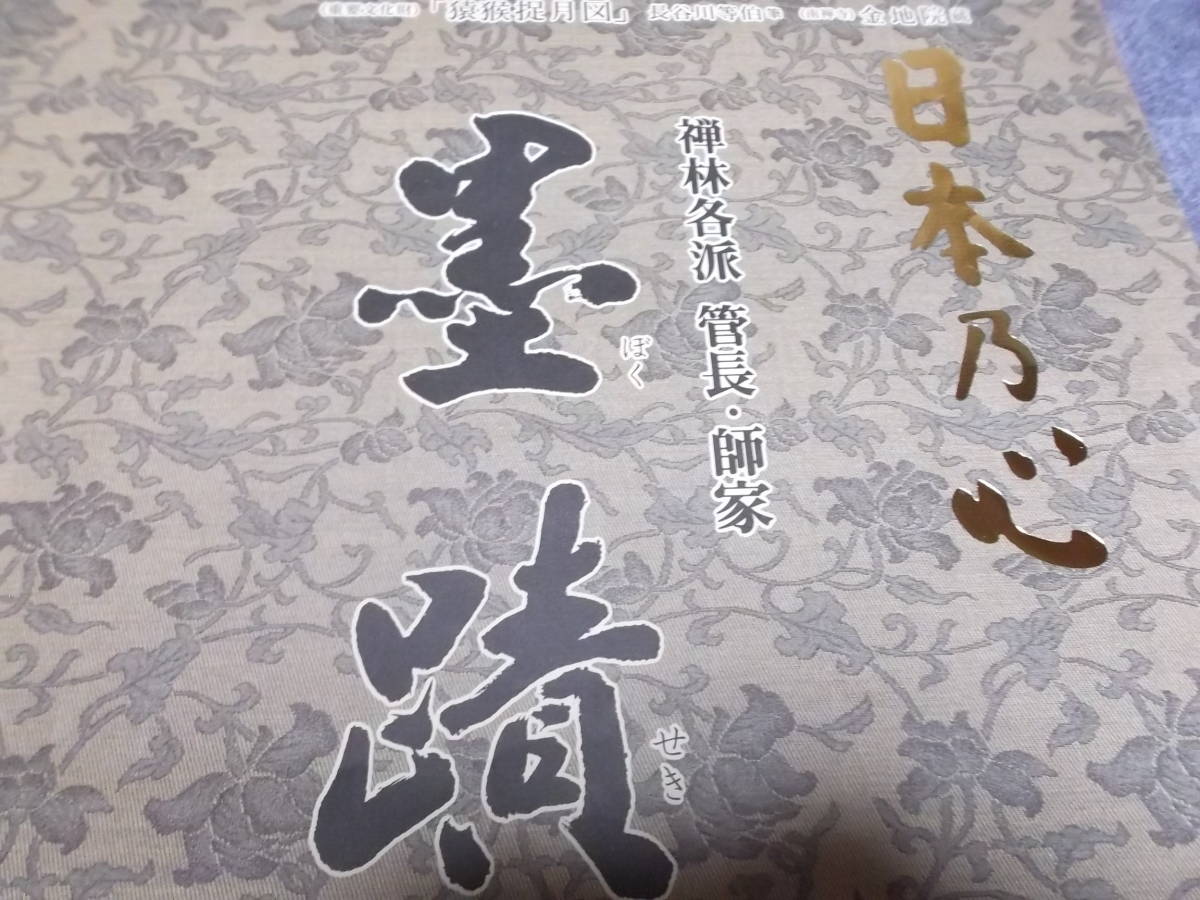 (重要文化財)「猿猴捉月図」 長谷川等伯筆 (南禅寺)金地院蔵
日本乃心
禅林各派 管長・師家
墨蹟
ぼく
せき